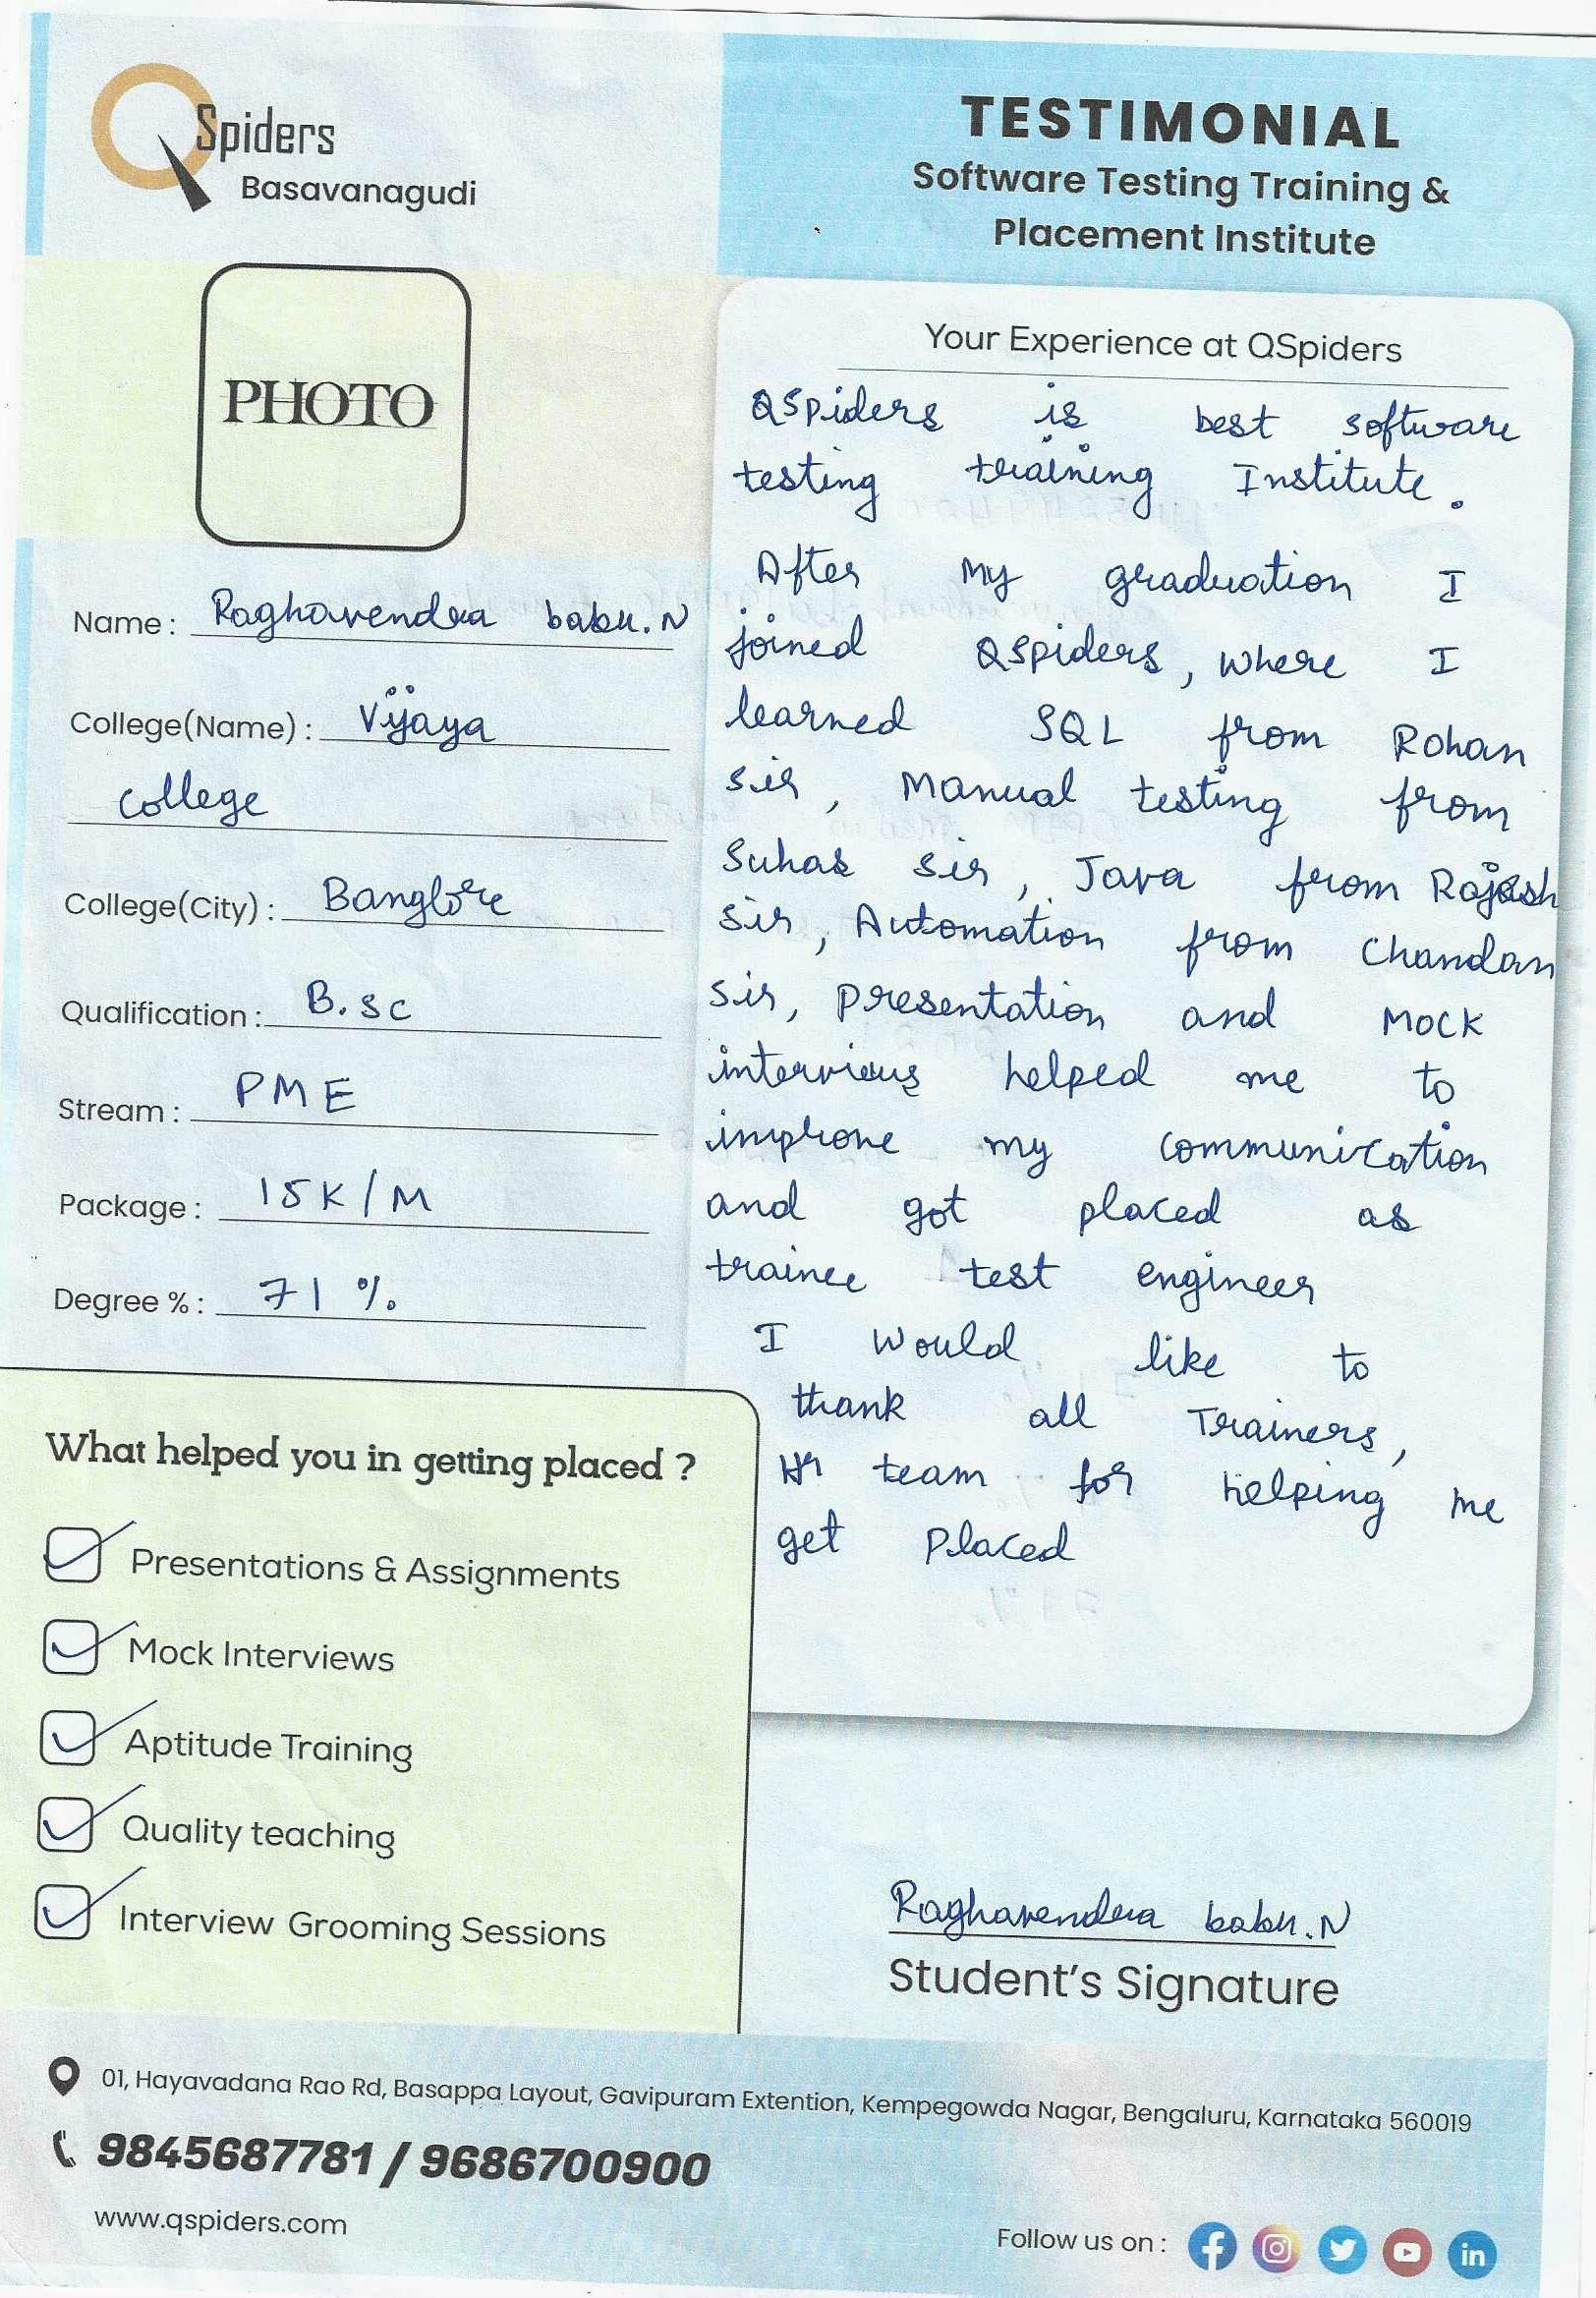 QSpiders
Basavanagudi
TESTIMONIAL
Software Testing Training &
Placement Institute
PHOTO
Name : Raghavendra babu.N
College(Name) : Vijaya
college
College(City) : Banglore
Qualification : B.sc
Stream : PME
Package : 15K/M
Degree % : 71 %
Your Experience at QSpiders
QSpiders is best software
testing training Institute.
After my graduation I
joined QSpiders, where I
learned SQL from Rohan
sir, Manual testing from
Suhas sir, Java from Rajesh
sir, Automation from Chandan
sir, presentation and Mock
interviews helped me to
improve my communication
and got placed as
trainee test engineer
I would like to
thank all Trainers,
Hr team for helping me
get placed
What helped you in getting placed ?
Presentations & Assignments
Mock Interviews
Aptitude Training
Quality teaching
Interview Grooming Sessions
Raghavendra babu.N
Student's Signature
01, Hayavadana Rao Rd, Basappa Layout, Gavipuram Extention, Kempegowda Nagar, Bengaluru, Karnataka 560019
9845687781 / 9686700900
www.qspiders.com
Follow us on :